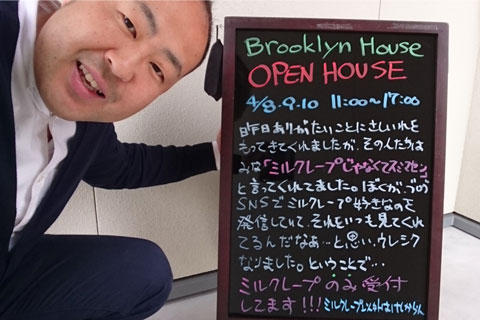 Brooklyn House
OPEN HOUSE
4/8.9.10 11:00〜17:00
昨日ありがたいことにさしいれを
もってきてくれましたが、そのんたちは
みな「ミルクレープじゃなくてスミマセン」
と言ってくれてました。ぼくが、
SNSでミルクレープ好きなのを
発信していて、それをいつも見てくれ
てるんだなぁ…と思い、ウレシク
なりました。ということで…
ミルクレープのみ受付
してます!!!ミルクレープ以外はけしからん